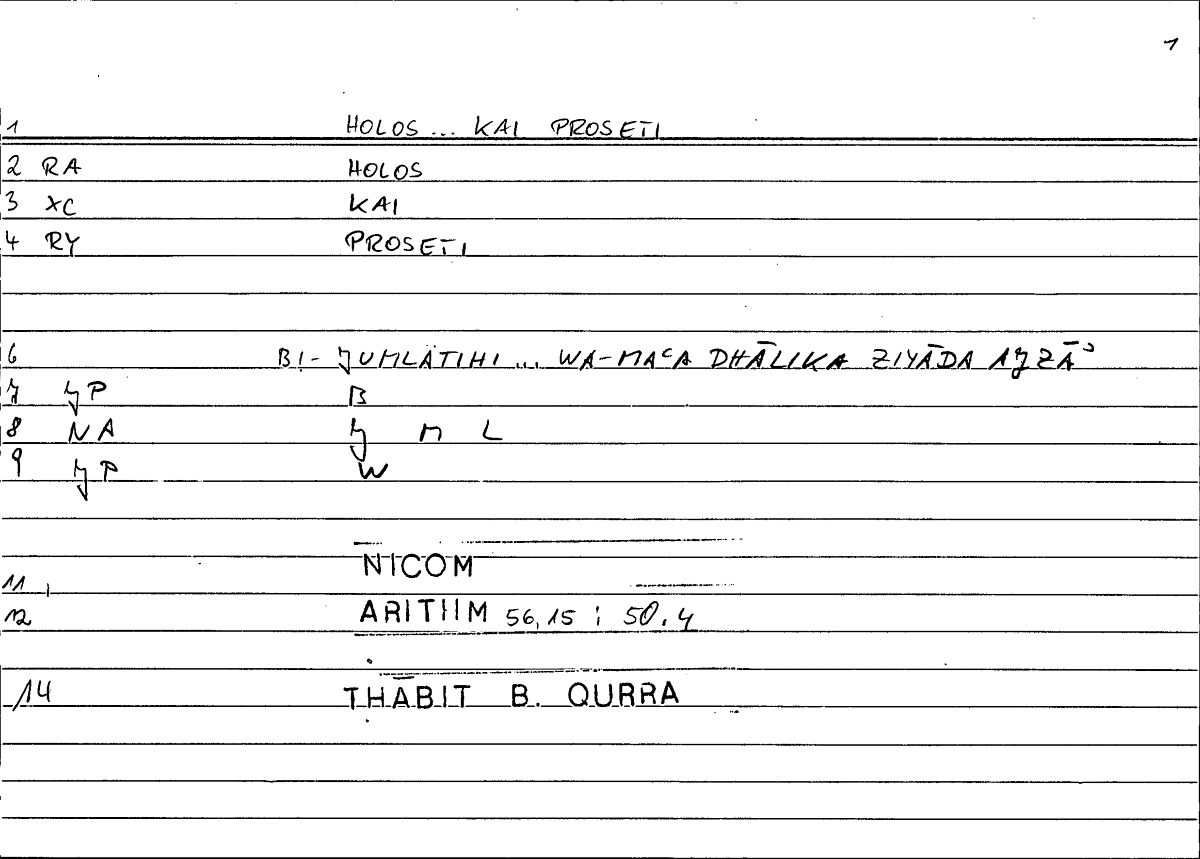 1
1 HOLOS ... KAI PROSETI
2 RA HOLOS
3 XC KAI
4 RY PROSETI
6 BI- JUMLATIHI ... WA-MAᶜA DHĀLIKA ZIYĀDA AJZĀʾ
7 JP B
8 NA J M L
9 JP W
NICOM
11
12 ARITIIM 56,15 ; 50.4
14 THĀBIT B. QURRA